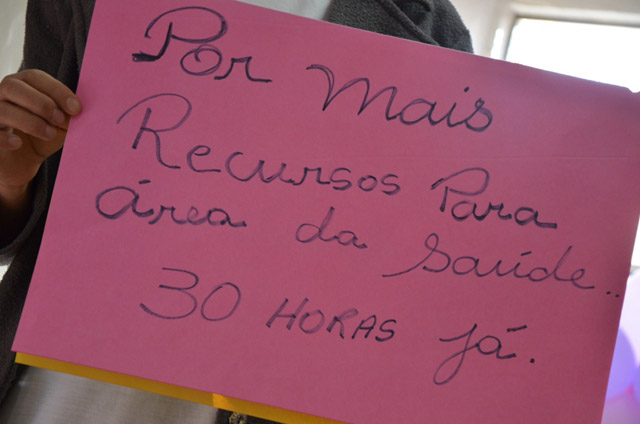 Por Mais
Recursos Para
área da Saúde..
30 HORAS já.